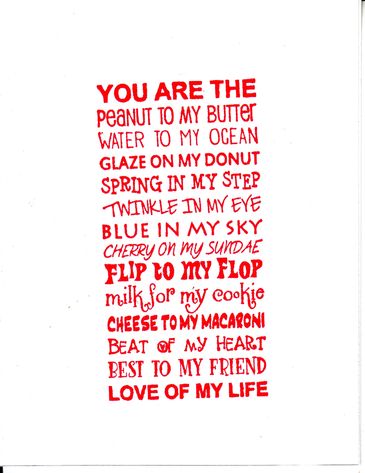 YOU ARE THE
PeaNUT TO MY BUTTer
WATER TO MY OCEAN
GLAZE ON MY DONUT
SPRING IN MY STEP
TWINKLE IN MY EYE
BLUE IN MY SKY
CHERRY ON MY SUNDAE
FLIP to MY FLOP
milk for my cookie
CHEESE TO MY MACARONI
BEAT OF MY HEART
BEST TO MY FRIEND
LOVE OF MY LIFE